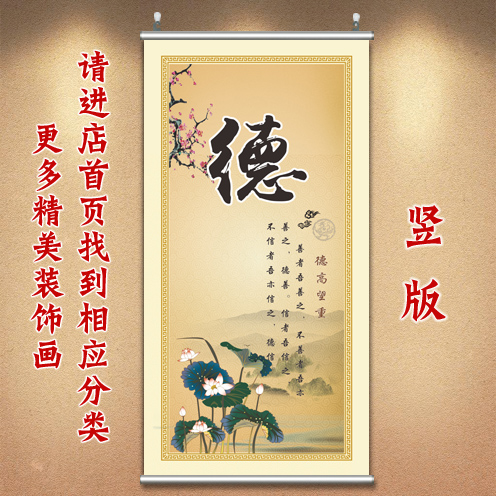 请进店首页找到相应分类
更多精美装饰画
德
德高望重
善者吾善之，不善者吾亦
善之，德善。信者吾信之
不信者吾亦信之，德信
竖版